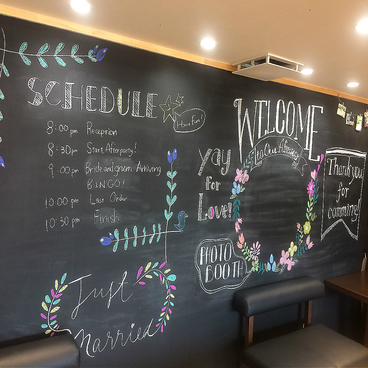 SCHEDULE
Have Fun!
8:00 pm Reception
8:30 pm Start Afterparty!
9:00 pm Bride and groom Arriving
BINGO!
10:00 pm Last Order
10:30 pm Finish
Just
Married
WELCOME
To Our Wedding
yay
for
Love!
PHOTO
BOOTH
Thank you
for
comming!